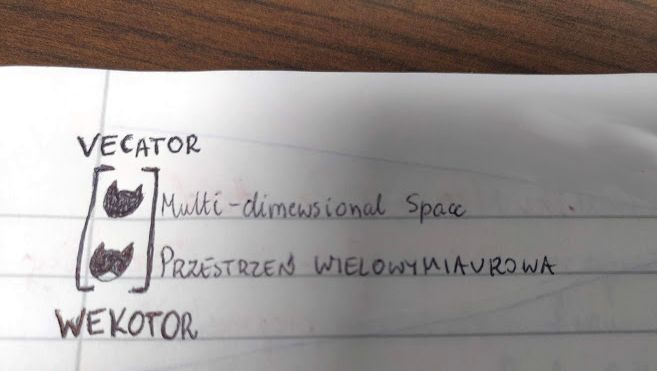 VECATOR
Multi-dimewsional Space
PRZESTRZEŃ WIELOWYMIAUROWA
WEKOTOR